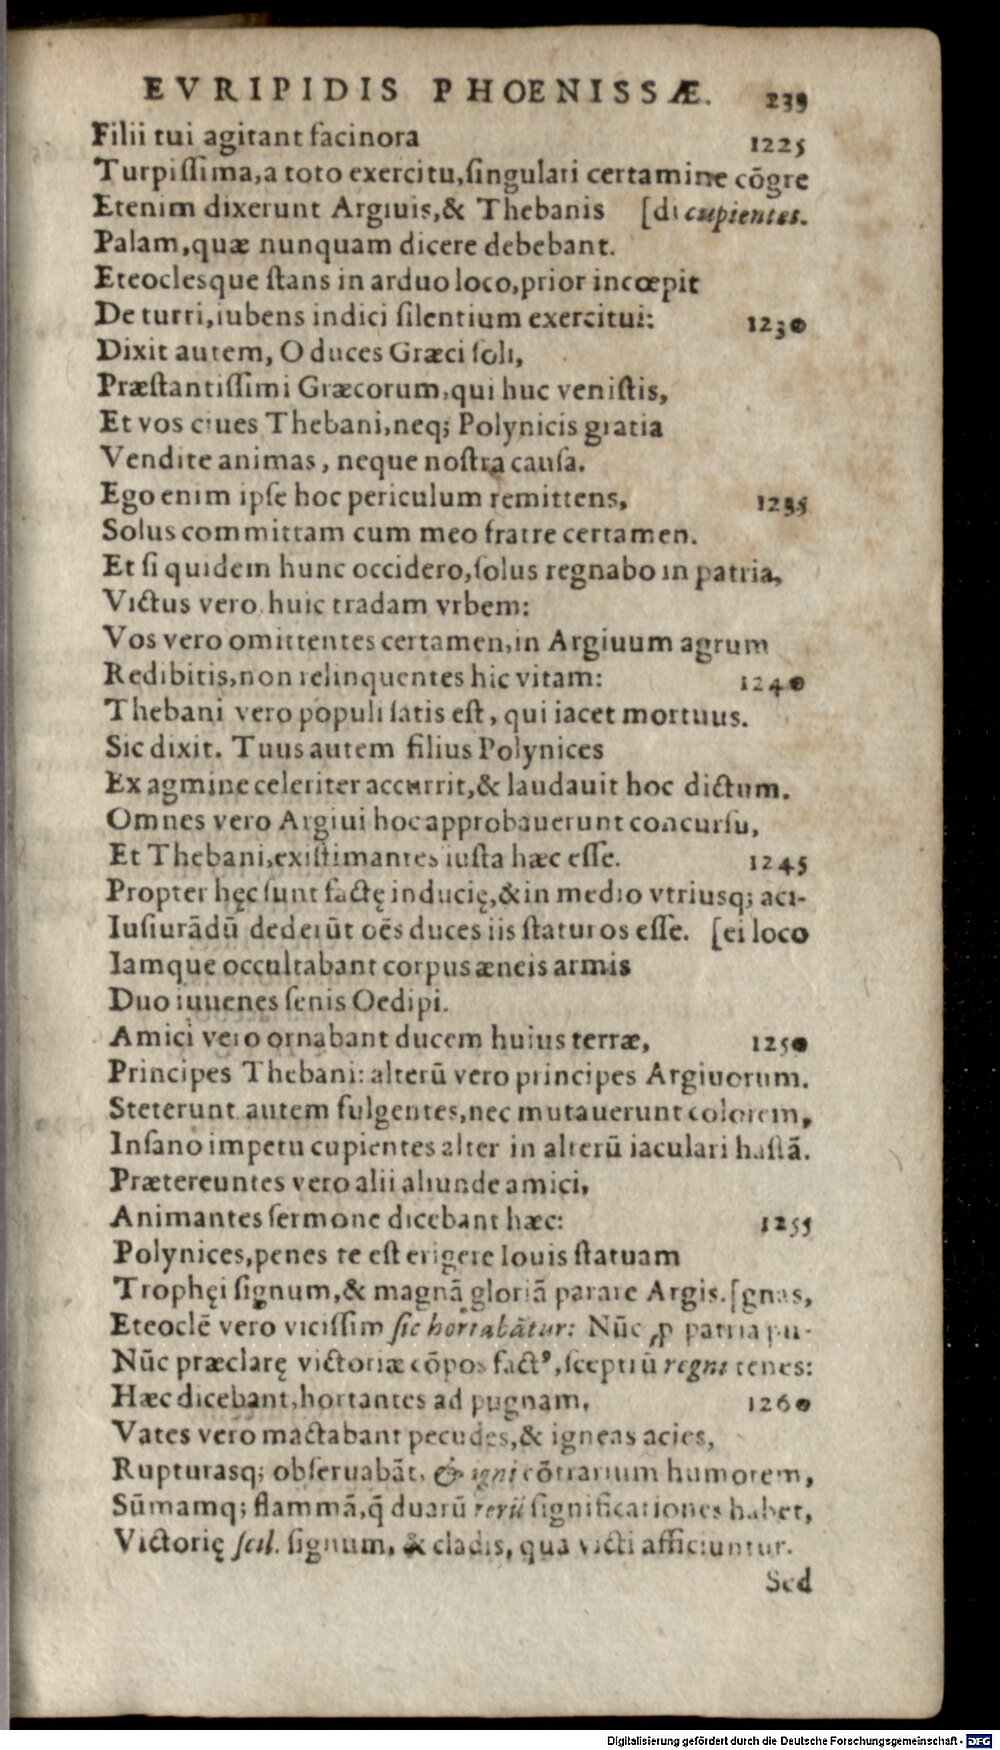 EVRIPIDIS PHOENISSÆ. 239
Filii tui agitant facinora 1225
Turpiſſima,a toto exercitu,ſingulari certamine cōgre
Etenim dixerunt Argiuis,& Thebanis [di cupientes.
Palam,quæ nunquam dicere debebant.
Eteoclesque ſtans in arduo loco,prior incœpit
De turri,iubens indici ſilentium exercitui: 1230
Dixit autem, O duces Græci ſoli,
Præſtantiſſimi Græcorum,qui huc veniſtis,
Et vos ciues Thebani,neq; Polynicis gratia
Vendite animas, neque noſtra cauſa.
Ego enim ipſe hoc periculum remittens, 1235
Solus committam cum meo fratre certamen.
Et ſi quidem hunc occidero,ſolus regnabo in patria,
Victus vero huic tradam vrbem:
Vos vero omittentes certamen,in Argiuum agrum
Redibitis,non relinquentes hic vitam: 1240
Thebani vero populi ſatis eſt, qui iacet mortuus.
Sic dixit. Tuus autem filius Polynices
Ex agmine celeriter accurrit,& laudauit hoc dictum.
Omnes vero Argiui hoc approbauerunt concurſu,
Et Thebani,exiſtimantes iuſta hæc eſſe. 1245
Propter hęc ſunt factę inducię,& in medio vtriusq; aci-
Iuſiurādū dederūt oēs duces iis ſtaturos eſſe. [ei loco
Iamque occultabant corpus æneis armis
Duo iuuenes ſenis Oedipi.
Amici vero ornabant ducem huius terræ, 1250
Principes Thebani: alterū vero principes Argiuorum.
Steterunt autem fulgentes,nec mutauerunt colorem,
Inſano impetu cupientes alter in alterū iaculari haſtā.
Prætereuntes vero alii aliunde amici,
Animantes ſermone dicebant hæc: 1255
Polynices,penes te eſt erigere Iouis ſtatuam
Trophęi ſignum,& magnā gloriā parare Argis. [gnas,
Eteoclē vero viciſſim ſic hortabātur: Nūc ꝓ patria pu-
Nūc præclarę victoriæ cōpos factꝰ,ſceptrū regni tenes:
Hæc dicebant,hortantes ad pugnam. 1260
Vates vero mactabant pecudes,& igneas acies,
Rupturasq; obſeruabāt, & igni cōtrarium humorem,
Sūmamq; flammā,q̄ duarū rerū ſignificationes habet,
Victorię ſcil. ſignum, & cladis, qua victi afficiuntur.
Sed
Digitalisierung gefördert durch die Deutsche Forschungsgemeinschaft - DFG